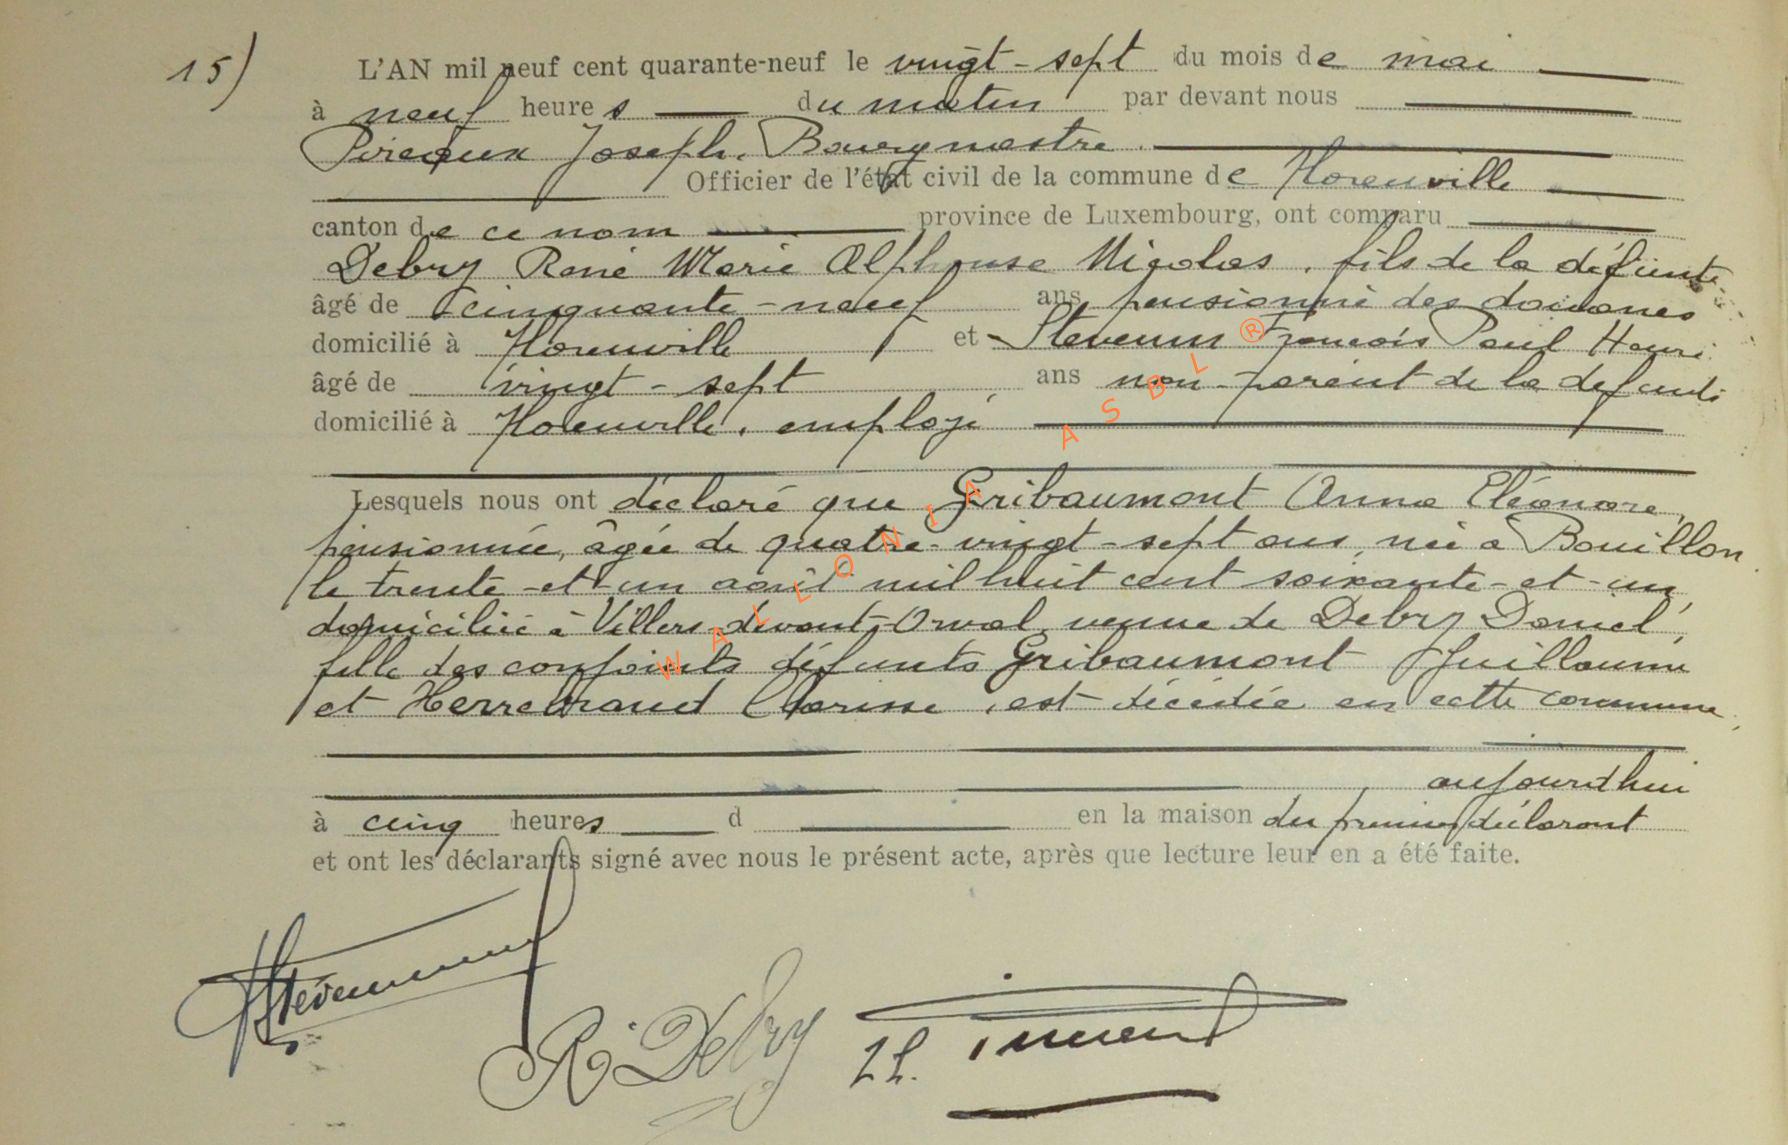 15)
L'AN mil neuf cent quarante-neuf le vingt-sept du mois de mai
à neuf heures du matin par devant nous
Joseph, Bourgmestre.
Officier de l'état civil de la commune de Florenville
canton de ce nom province de Luxembourg, ont comparu
Debry René Marie Alphonse Nicolas, fils de la défunte
âgé de cinquante-neuf ans pensionné des douanes
domicilié à Florenville et François Paul Henri
âgé de vingt-sept ans non-parent de la defunte
domicilié à Florenville, employé
Lesquels nous ont déclaré que Gribaumont Anna Eléonore,
pensionnée, âgée de quatre-vingt-sept ans, née à Bouillon
le trente-et-un août mil huit cent soixante-et-un,
domiciliée à Villers-devant-Orval, veuve de Debry Daniel,
fille des conjoints défunts Gribaumont Guillaume
et Herrebrand Clarisse, est décédée en cette commune,
aujourd'hui
à cinq heures d en la maison du premier déclarant
et ont les déclarants signé avec nous le présent acte, après que lecture leur en a été faite.
R. Debry
WALLONIA ASBL ®